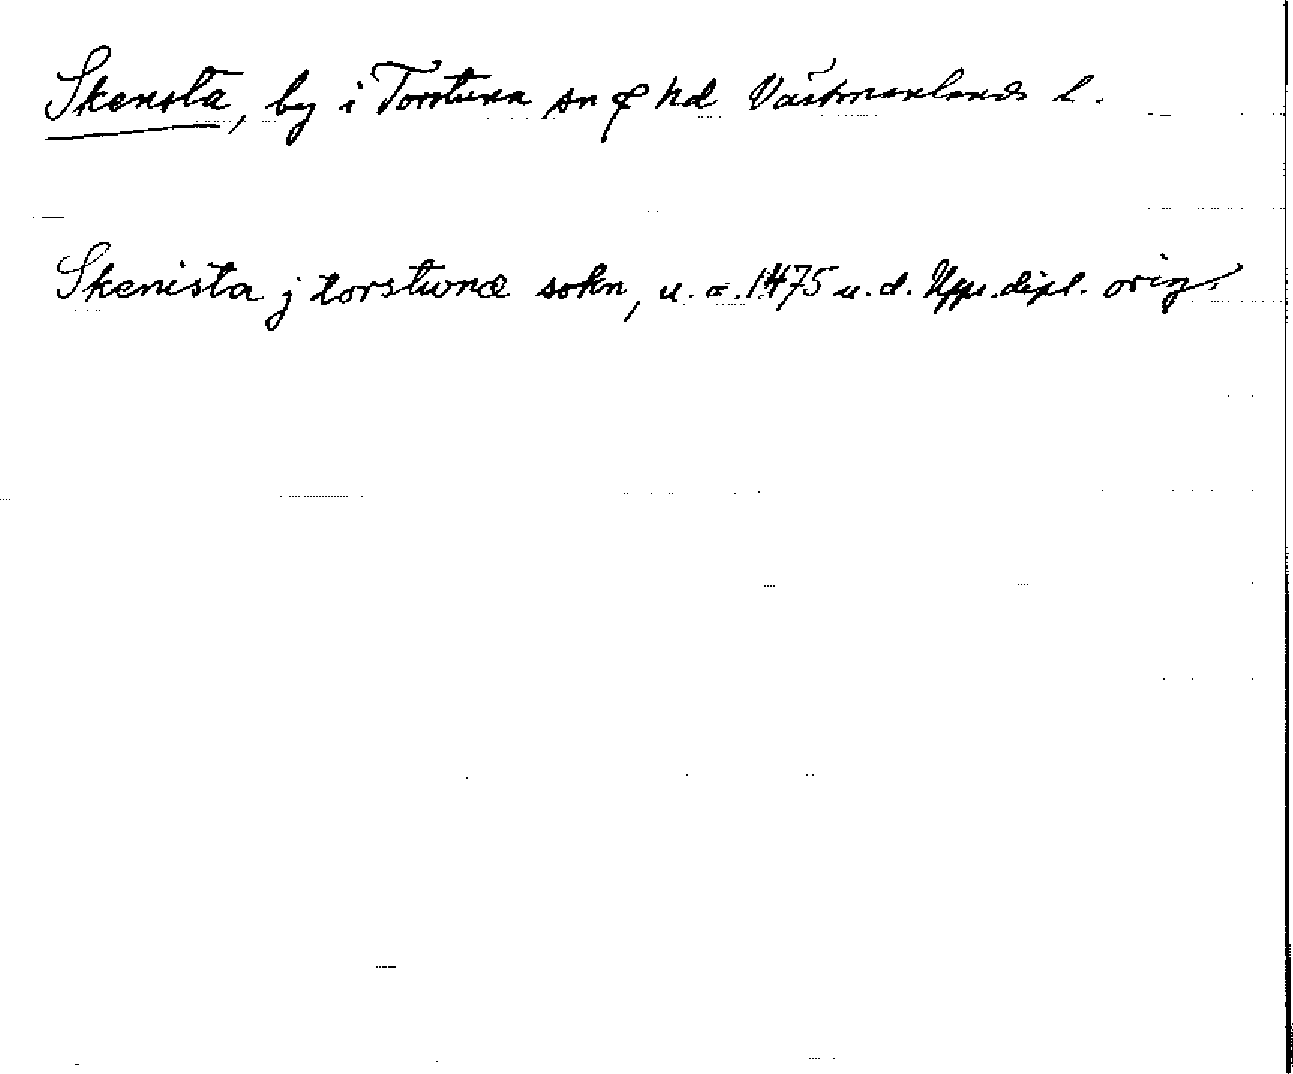 Skensta, by i Torstuna sn & hd Västmanlands l.
Skenista j torstwnæ sokn, u. o. 1475 u. d. Upps. dipl. orig.